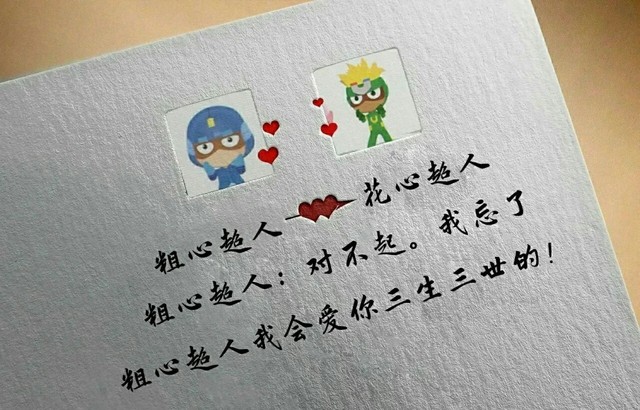 粗心超人 花心超人
粗心超人：对不起。我忘了
粗心超人我会爱你三生三世的！